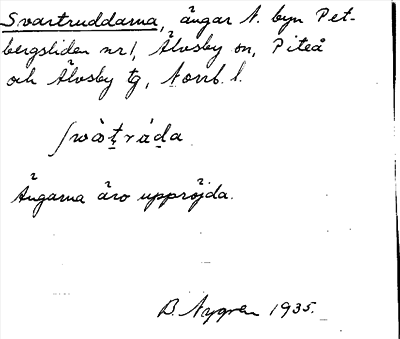 Svartruddarna, ängar t. byn Pet-
bergsliden nr 1, Älvsby sn, Piteå
och Älvsby tg, Norrb. l.
ʃwòt̠ràd̠a
Ängarna äro uppröjda.
B. Nygren 1935.